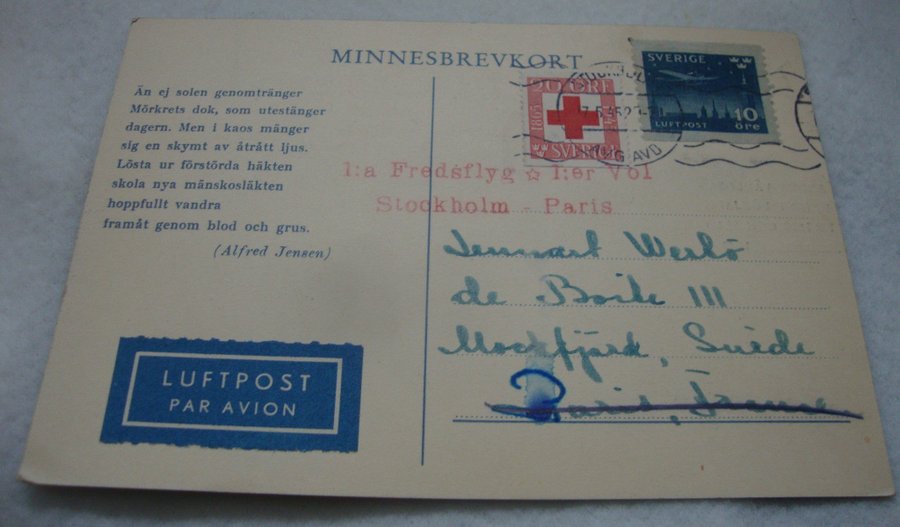 MINNESBREVKORT
Än ej solen genomtränger
Mörkrets dok, som utestänger
dagern. Men i kaos mänger
sig en skymt av åtrått ljus.
Lösta ur förstörda häkten
skola nya mänskosläkten
hoppfullt vandra
framåt genom blod och grus.
(Alfred Jensen)
LUFTPOST
PAR AVION
20 ÖRE
1865
SVERIGE
SVERIGE
LUFTPOST
10
öre
1:a Fredsflyg ☆ 1:er Vol
Stockholm - Paris
Lennart Werlö
de Boite 111
Mockfjärd, Suède
Paris, France